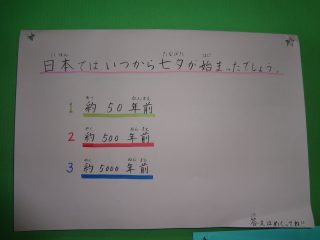 日本ではいつから七夕が始まったでしょう。
1 約50年前
2 約500年前
3 約5000年前
答えはめくってね!